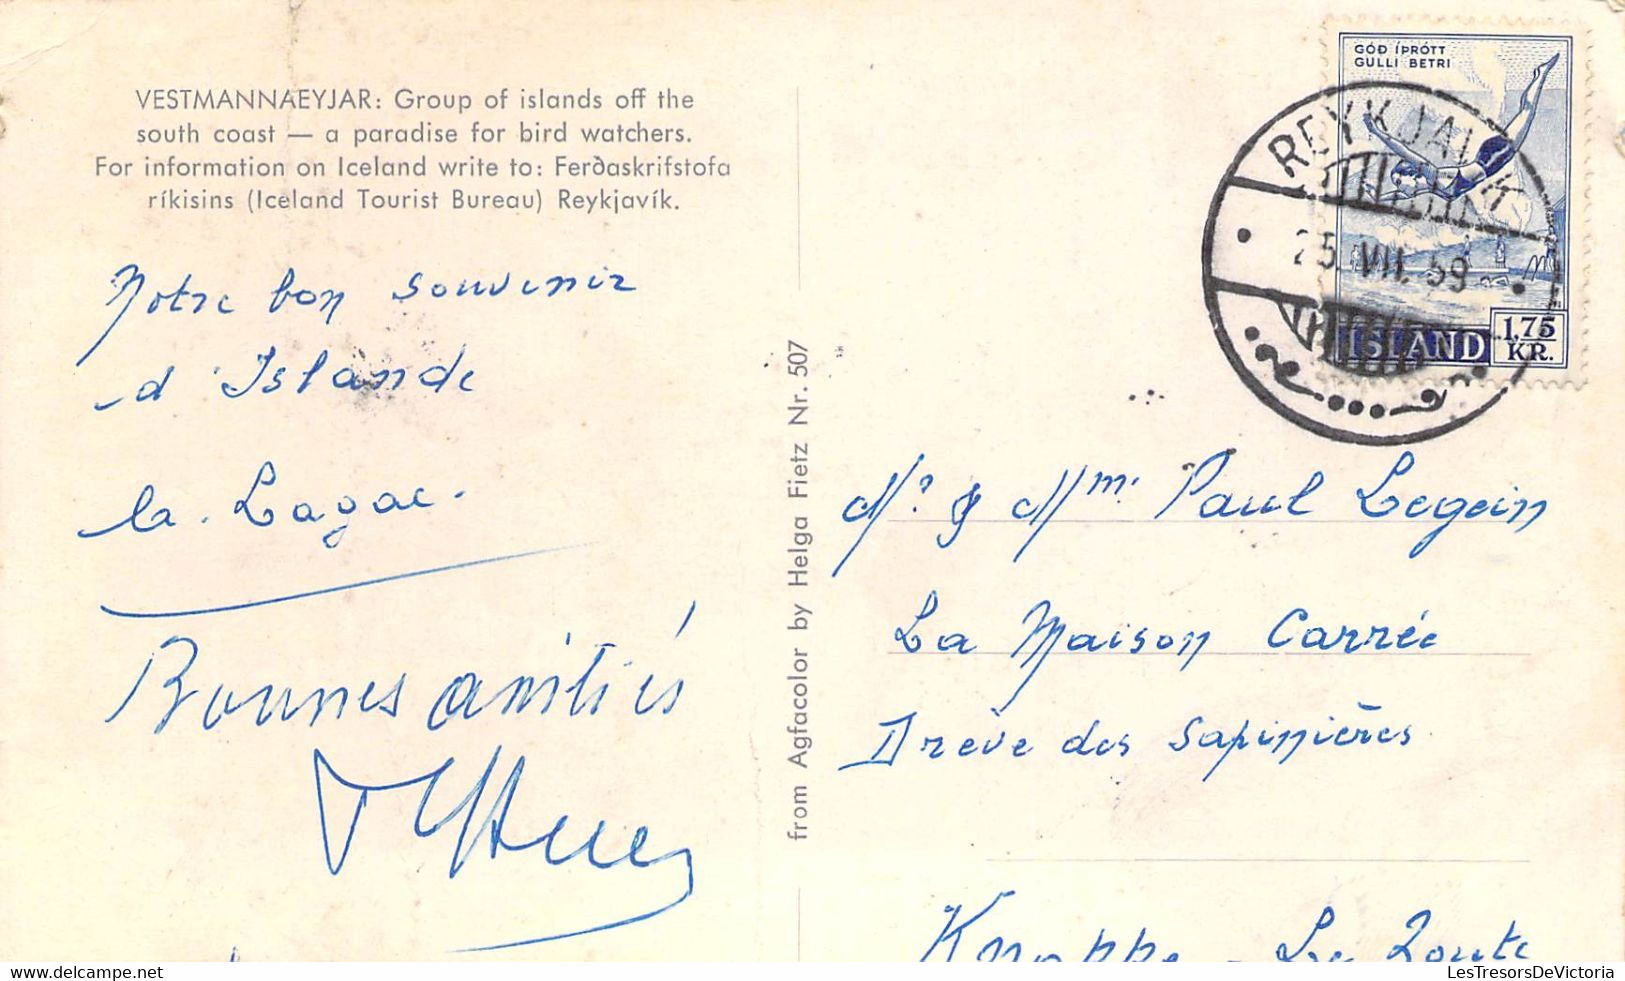 VESTMANNAEYJAR: Group of islands off the
south coast — a paradise for bird watchers.
For information on Iceland write to: Ferðaskrifstofa
ríkisins (Iceland Tourist Bureau) Reykjavík.
Notre bon souvenir
d'Islande
Bonnes amitiés
from Agfacolor by Helga Fietz Nr. 507
GÓÐ ÍÞRÓTT
GULLI BETRI
REYKJAVIK
25. VII. 59
ÍSLAND 1,75
KR.
Mr & Mme. Paul Legein
La Maison Carrée
Drève des Sapinières
Knokke - Le Zoute
LesTresorsDeVictoria